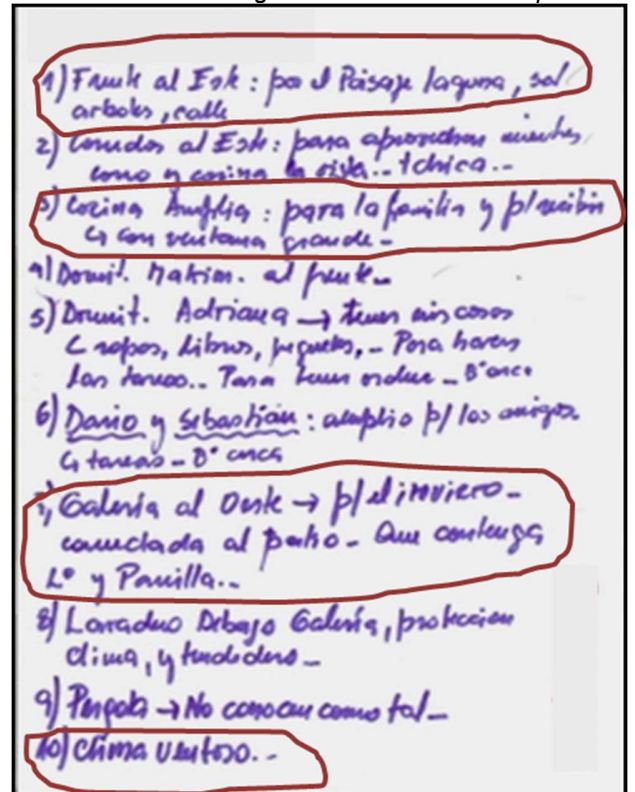 1) Frente al Este: por el Paisaje laguna, sol
arboles, calle
2) Comedor al Este: para aprovechar
como y cocina la vista..
3) Cocina Amplia: para la familia y p/recibir
con ventana grande.-
4) Dormit. Matrim. al frente..
5) Dormit. Adriana → tener mis cosas
ropas, libros, juguetes,.- Para hacer
las tareas.. Para tener orden.- B°
6) Dario y Sebastián: amplio p/ los amigos.
tareas - B°
7) Galería al Oeste → p/el invierno-
conectada al patio- Que contenga
L° y Parrilla..
8) Lavadero Debajo Galería, proteccion
clima, y tendedero-
9) Pergola → No conocen como tal-
10) Clima ventoso.-